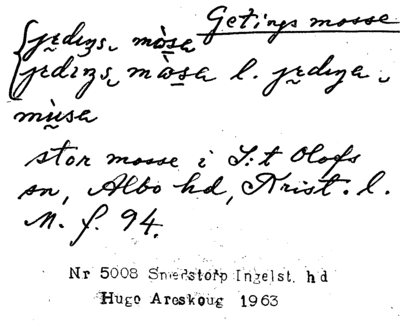 Getings mosse
jɛdɩŋs, mòsa
jɛdɩŋs, mòsa l. jɛdɩŋa,
mùsa
stor mosse i S:t Olofs
sn, Albo hd, Krist. l.
M. f. 94.
Nr 5008 Smedstorp Ingelst. hd
Hugo Areskoug 1963